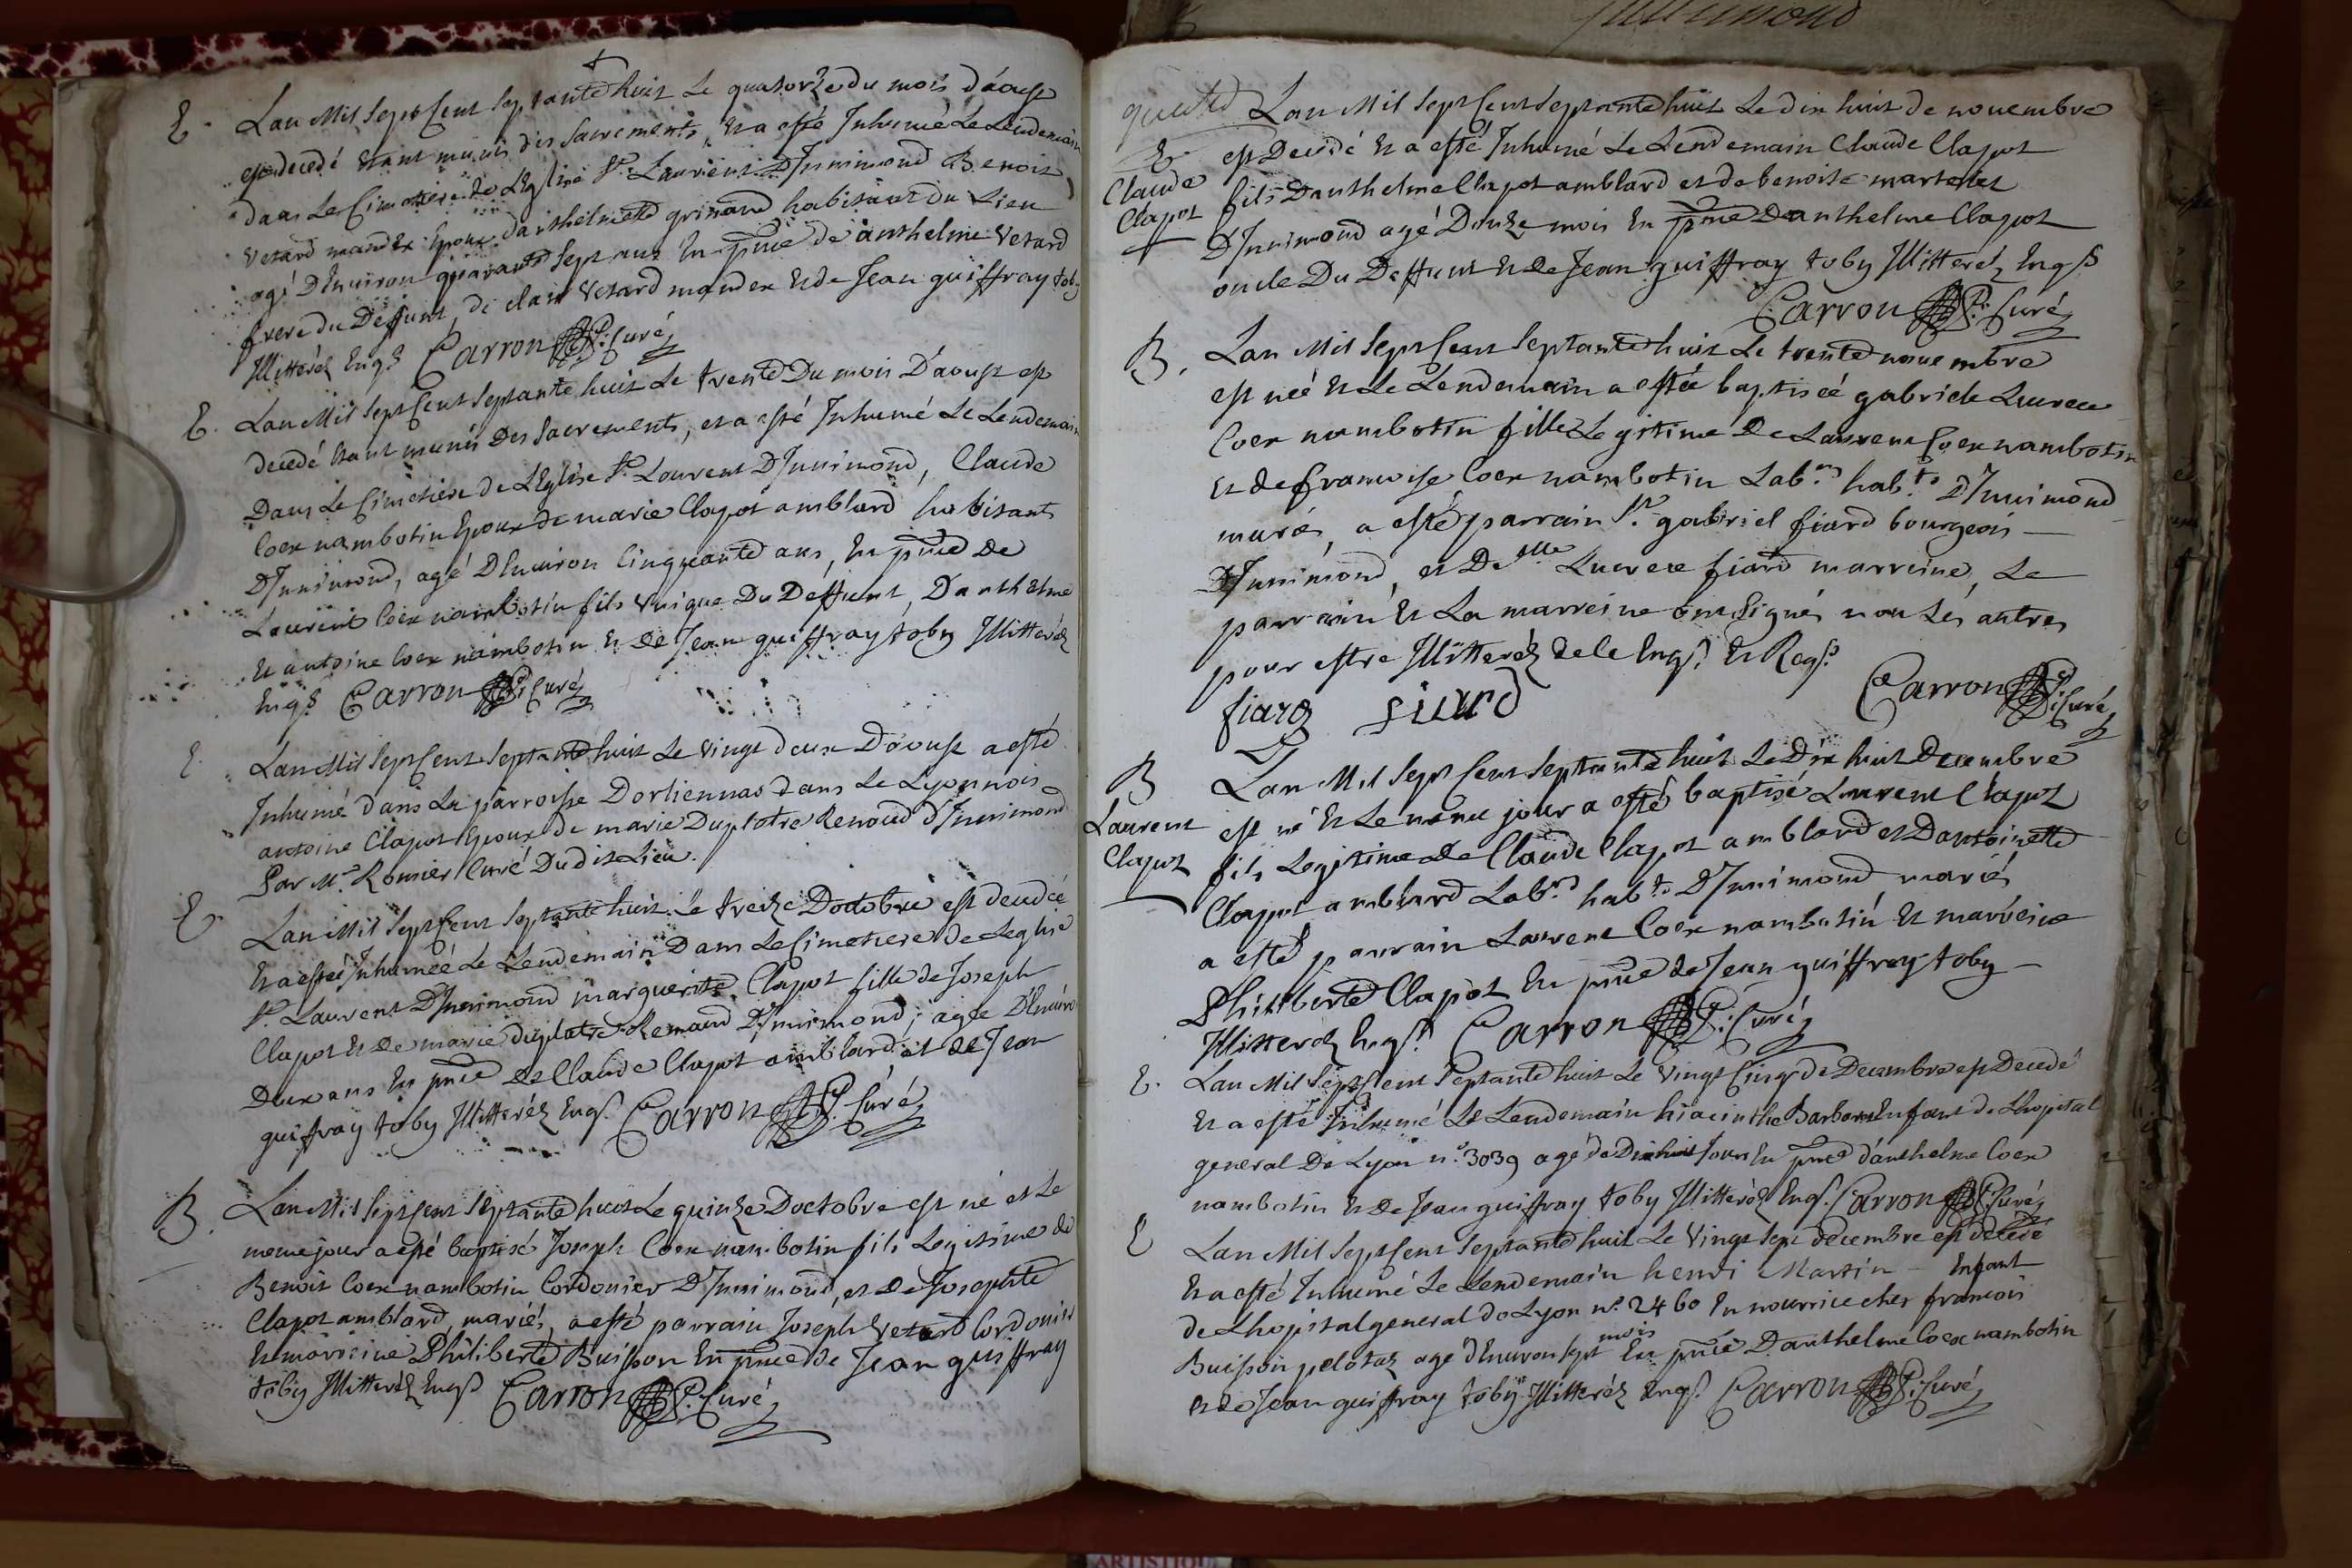 E Lan Mil Sept Cent Septante huit Le quatorze du mois d'aoust
est decedé Etant munis des Sacrements, Et a esté Inhumé Le Lendemain
dans Le Cimetiere de L'Eglise St. Laurent D'Innimond Benoit
Vetard mander Epoux d'anthelmette grinand habitant du Lieu
agé D'Environ quarante Sept ans En pnce de anthelme Vetard
frere du Deffunt, de claude Vetard mander Et de Jean guiffray toby
Illitteréz Engs Carron P: Curé
E. Lan Mil Sept Cent Septante huit Le trente Du mois D'aoust est
decedé Etant munis Des Sacrements, et a esté Inhumé Le Lendemain
Dans Le Cimetiere de L'Eglise St. Laurent D'Innimond, Claude
Coex nambotin Epoux de marie Clapot amblard habitant
D'Innimond, agé D'Environ Cinquante ans, En pnce De
Laurent Coex nambotin fils Unique Du Deffunt, Danthelme
Et antoine Coex nambotin Et De Jean guiffray toby Illitteréz
Engs Carron P: Curé
E. Lan Mil Sept Cent Septante huit Le Vingt deux D'aoust a esté
Inhumé dans La parroisse Dorliennas dans Le Lyonnois
antoine Clapot Epoux de marie Duplatre Renoud d'Innimond
Par Mr. Romier Curé Du dit Lieu.
E Lan Mil Sept Cent Septante huit Le treize D'octobre est decedée
Et a estée Inhumée Le Lendemain Dans Le Cimetiere de Leglise
St. Laurent D'Innimond marguerite Clapot fille de Joseph
Clapot Et De marie duplatre Renaud D'Innimond, agée D'Environ
Deux ans En pnce De Claude Clapot amblard et de Jean
guiffray toby Illitteréz Engs. Carron P: Curé
B. Lan Mil Sept Cent Septante huit Le quinze D'octobre est né et Le
meme jour a esté baptisé Joseph Coex nambotin fils Legitime de
Benoit Coex nambotin Cordonier D'Innimond, et De Josephte
Clapot amblard, mariés, a esté parrain Joseph Vetard Cordonier
Et marreine Philiberte Buisson En pnce De Jean guiffray
toby Illitteréz Engs Carron P: Curé
Lan Mil Sept Cent Septante huit Le dix huit de novembre
E est Decedé Et a esté Inhumé Le Lendemain Claude Clapot
Claude Clapot
fils D'anthelme Clapot amblard et de benoite martelet
D'Innimond agé Douze mois En pnce D'anthelme Clapot
oncle Du Deffunt Et de Jean guiffray toby Illitteréz Engs
Carron P: Curé
B. Lan Mil Sept Cent Septante huit Le trente novembre
est néé Et Le Lendemain a estée baptiséé gabriele Lucrece
Coex nambotin fille Legitime De Laurent Coex nambotin
Et de francoise Coex nambotin Labrs habts D'Innimond
mariés, a esté parrain Sr. gabriel fiard bourgeois
D'Innimond, et Dslle Lucrece fiard marreine, Le
parrain Et La marreine ont Signés non Les autres
pour estre Illitteréz de ce Engs. Et Reqs.
fiard fiard Carron P: Curé
B Lan Mil Sept Cent Septante huit Le Dix huit Decembre
Laurent Clapot
est né Et Le meme jour a esté baptisé Laurent Clapot
fils Legitime de Claude Clapot amblard et Dantoinette
Clapot amblard Labrs habts D'Innimond mariés
a esté parrain Laurent Coex nambotin Et marreine
Philiberte Clapot En pnce de Jean guiffray toby
Illitteréz Engs. Carron P: Curé
E. Lan Mil Sept Cent Septante huit Le Vingt Cinq de Decembre est Decedé
Et a esté Inhumé Le Lendemain hiacinthe Barbom Enfant de Lhopital
general De Lyon n.° 3039 agé de Dix huit Jours En pnce d'anthelme Coex
nambotin Et De Jean guiffray toby Illitteréz Engs. Carron P: Curé
E Lan Mil Sept Cent Septante huit Le Vingt Sept decembre est decedé
Et a esté Inhumé Le Lendemain henri Martin Enfant
de Lhopital general de Lyon n.° 2460 En nourrice ches francois
Buisson pelotaz agé d'Environ Sept mois En pnce D'anthelme Coex nambotin
et de Jean guiffray toby Illitteréz Engs. Carron P: Curé
ARTISTIQU